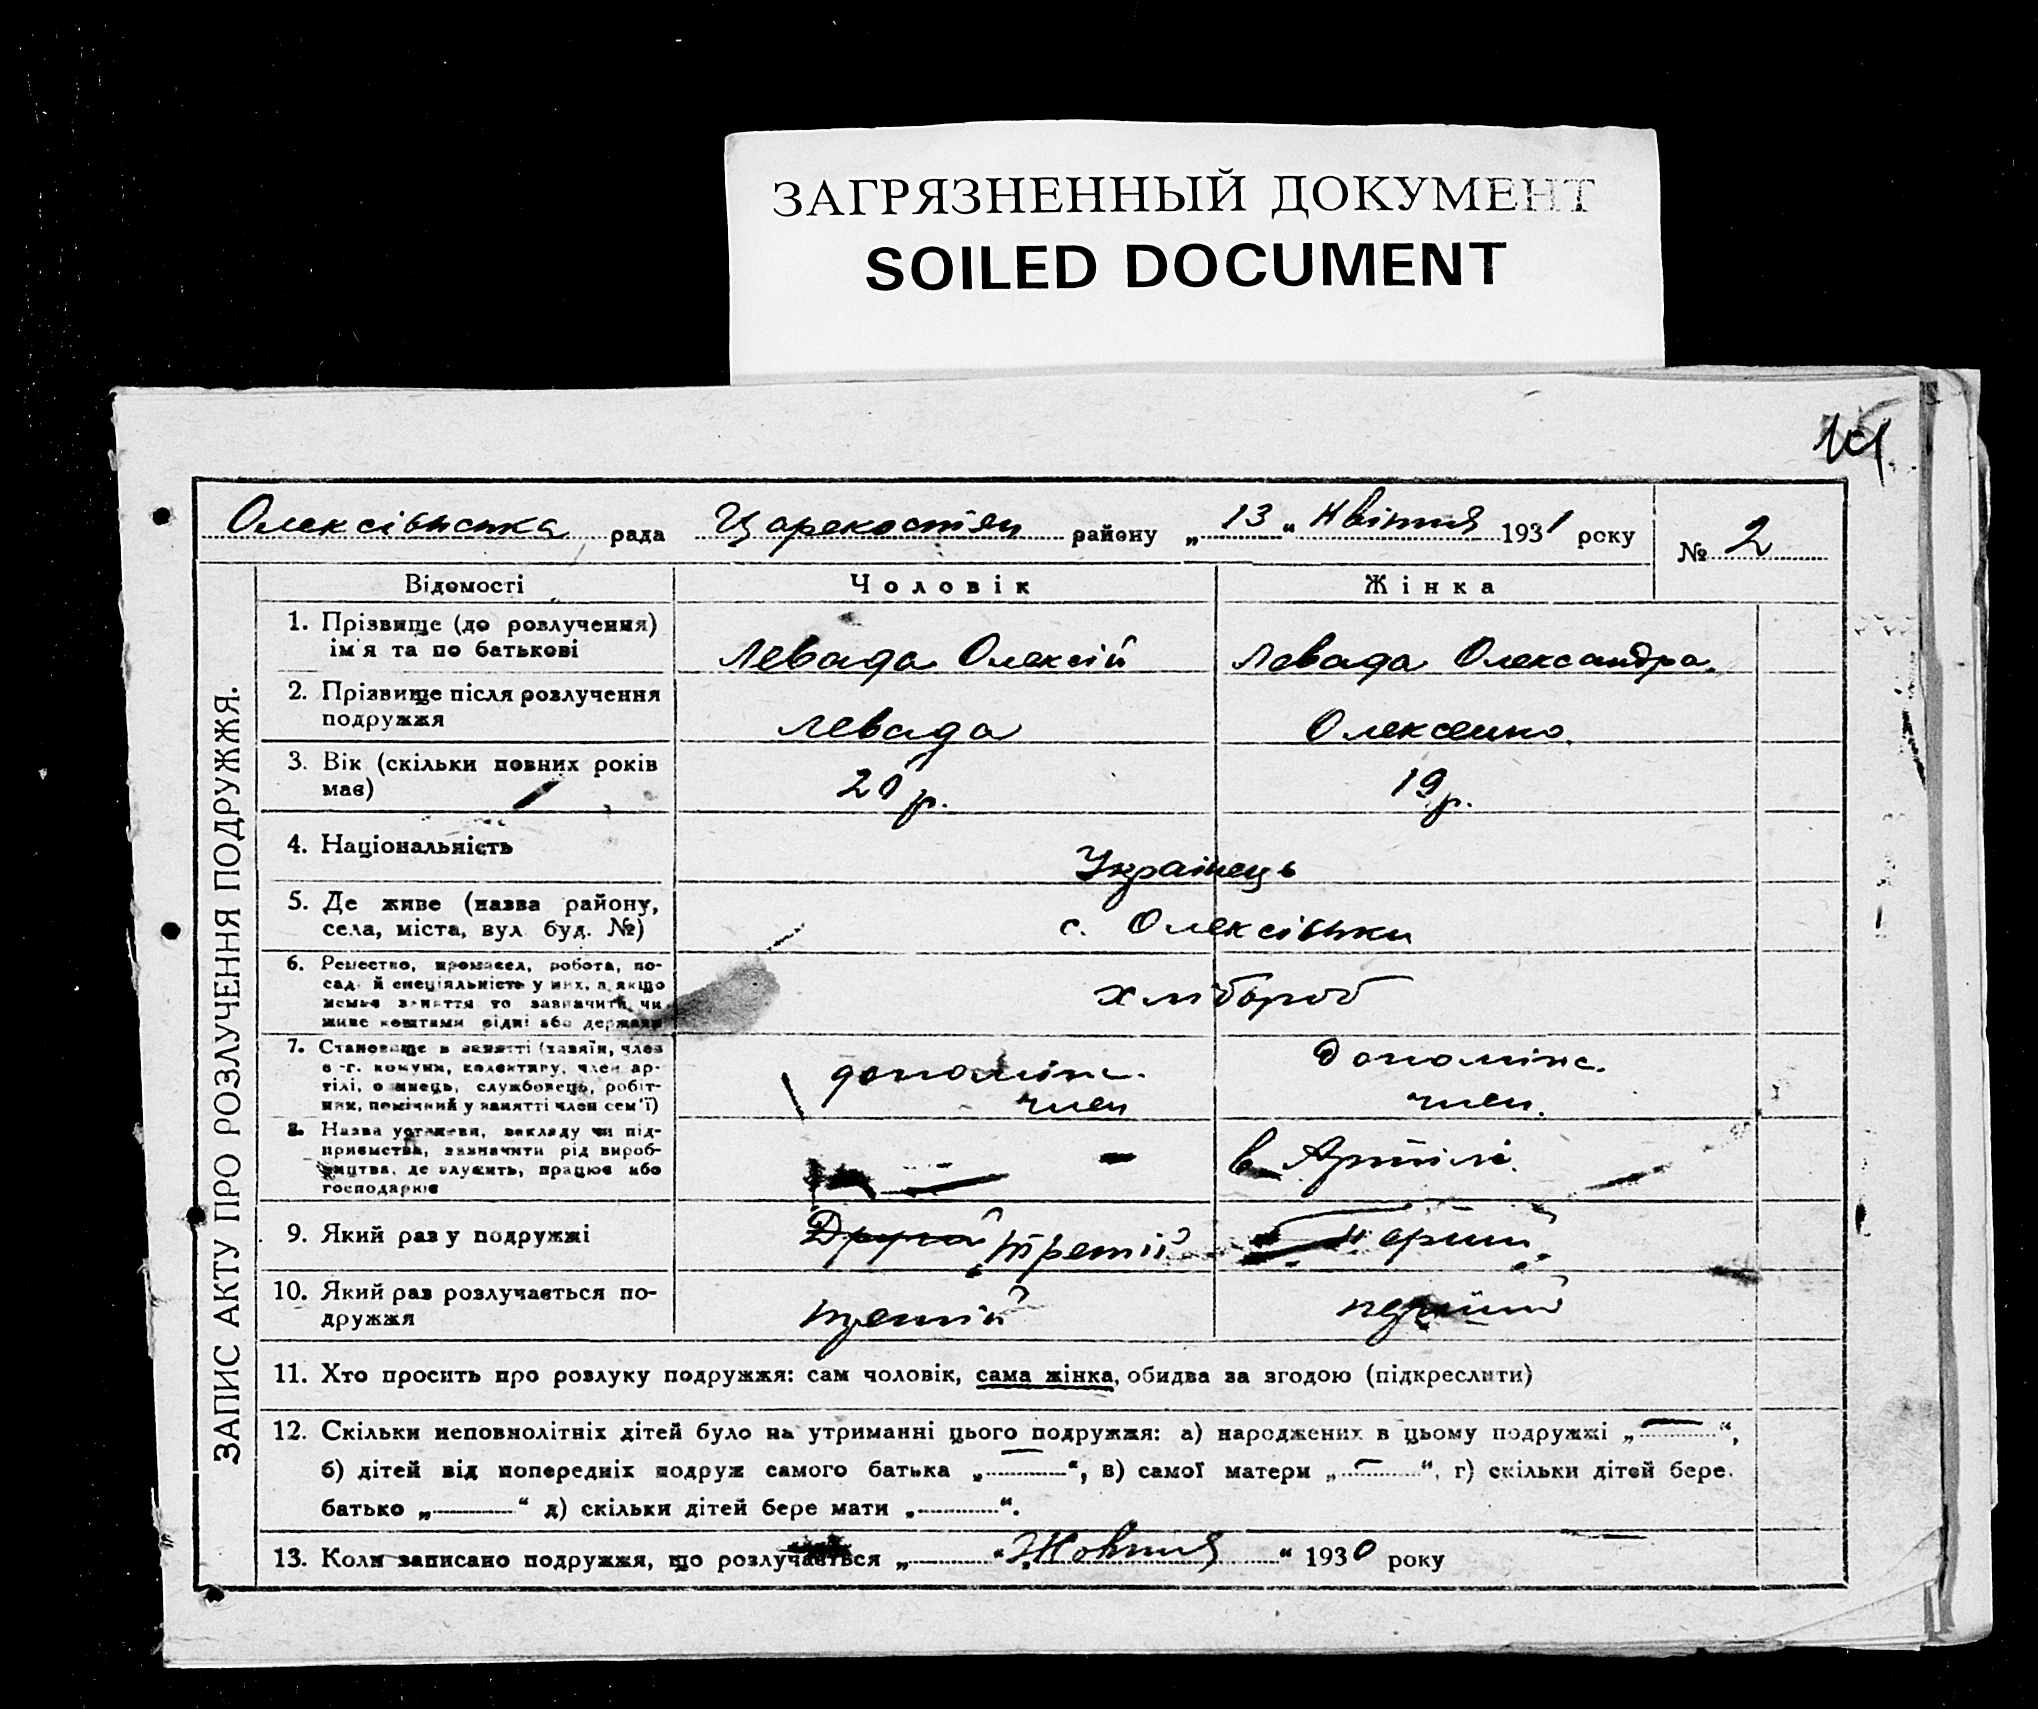 ЗАГРЯЗНЕННЫЙ ДОКУМЕНТ
SOILED DOCUMENT
Олексівська рада Царекостян району „13“ Квітня 1931 року № 2
ЗАПИС АКТУ ПРО РОЗЛУЧЕННЯ ПОДРУЖЖЯ.
Відомості Чоловік Жінка
1. Прізвище (до розлучення)
ім'я та по батькові
Левада Олексій Левада Олександра
2. Прізвище після розлучення
подружжя
Левада Олексенко
3. Вік (скільки повних років
має)
20 р. 19 р.
4. Національність
Українець
5. Де живе (назва району,
села, міста, вул буд. №)
с. Олексівки
6. Ремество, промисел, робота, по-
сад. й спеціяльність у них, а якщо
немає заняття то зазначити, чи
живе коштами рідні або держави
хлібороб
7. Становище в занятті (хазяїн, член
с.-г. комуни, колективу, член ар-
тілі, одинець, службовець, робіт-
ник, помічний у занятті член сем'ї)
допоміжн. Допоміжн.
член член.
8. Назва установи, закладу чи під-
приємства, зазначити рід вироб-
ництва, де служить, працює або
господарює
— в Артілі
9. Який раз у подружжі
Другой третій перший
10. Який раз розлучається по-
дружжя
третій перший
11. Хто просить про розлуку подружжя: сам чоловік, сама жінка, обидва за згодою (підкреслити)
12. Скільки неповнолітніх дітей було на утриманні цього подружжя: а) народжених в цьому подружжі „—“,
б) дітей від попередніх подруж самого батька „—“, в) самої матери „—“, г) скільки дітей бере
батько „ “ д) скільки дітей бере мати „ “.
13. Коли записано подружжя, що розлучається „ “ „Жовтня“ 1930 року